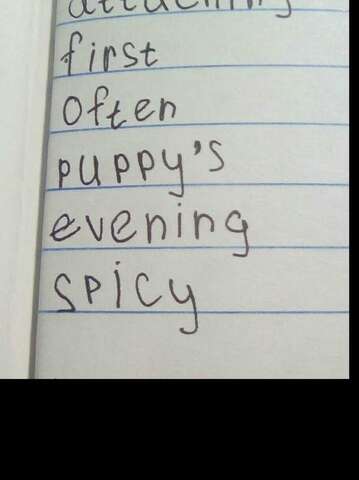 attaching
first
often
puppy's
evening
spicy